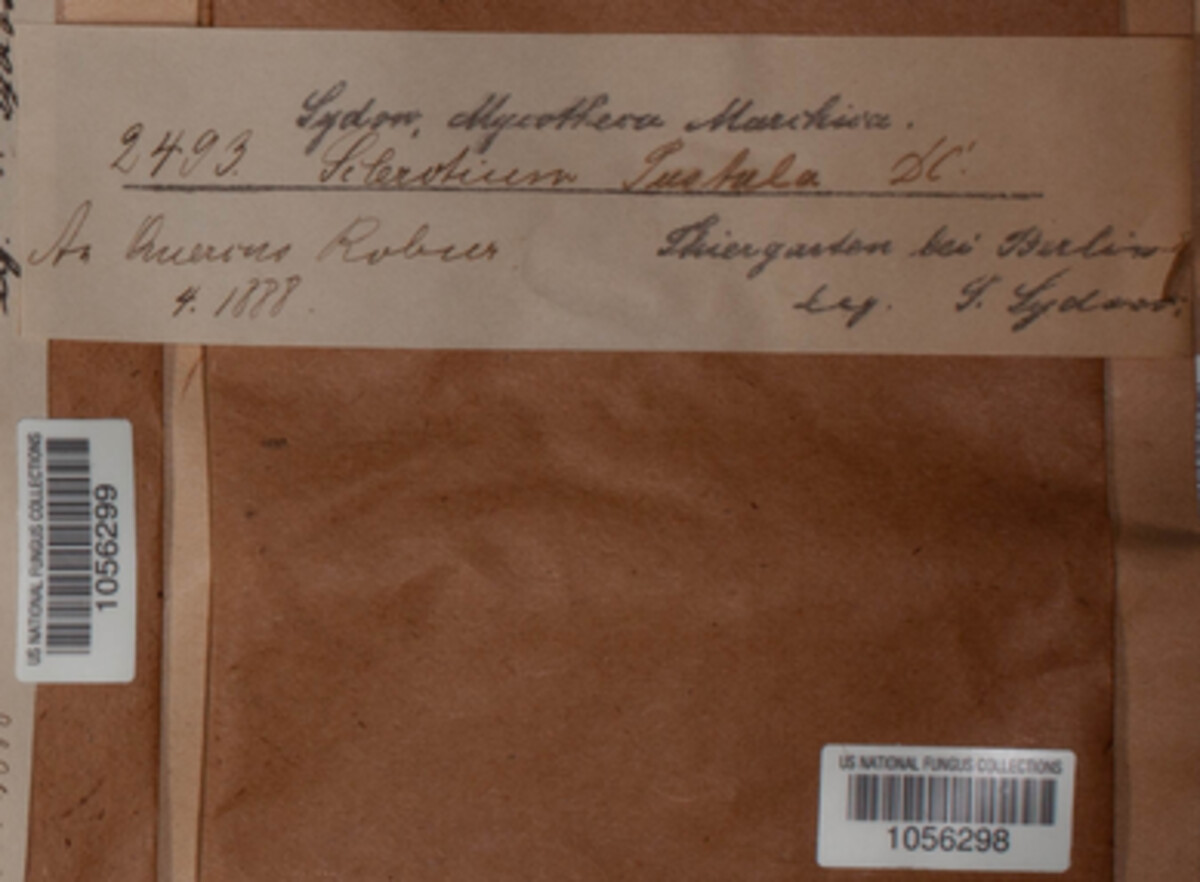 Sydow, Mycotheca Marchica.
2493. Sclerotium Pustula DC.
An Quercus Robur
4. 1888.
Thiergarten bei Berlin
leg. P. Sydow.
US NATIONAL FUNGUS COLLECTIONS
1056299
US NATIONAL FUNGUS COLLECTIONS
1056298